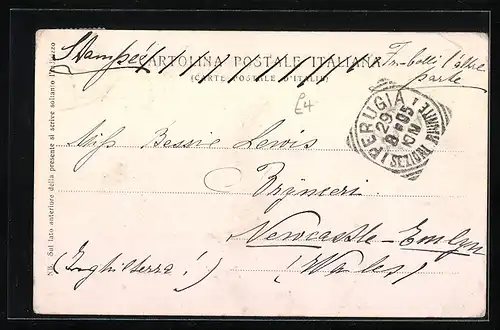 Stampe
CARTOLINA POSTALE ITALIANA
(CARTE POSTALE D'ITALIE)
l'altra
parte
£4
PERUGIA
29
8-05
Miss Bessie Lewis
Newcastle-Emlyn
(Inghilterra!) (Wales)
NB. Sul lato anteriore della presente si scrive soltanto l'indirizzo